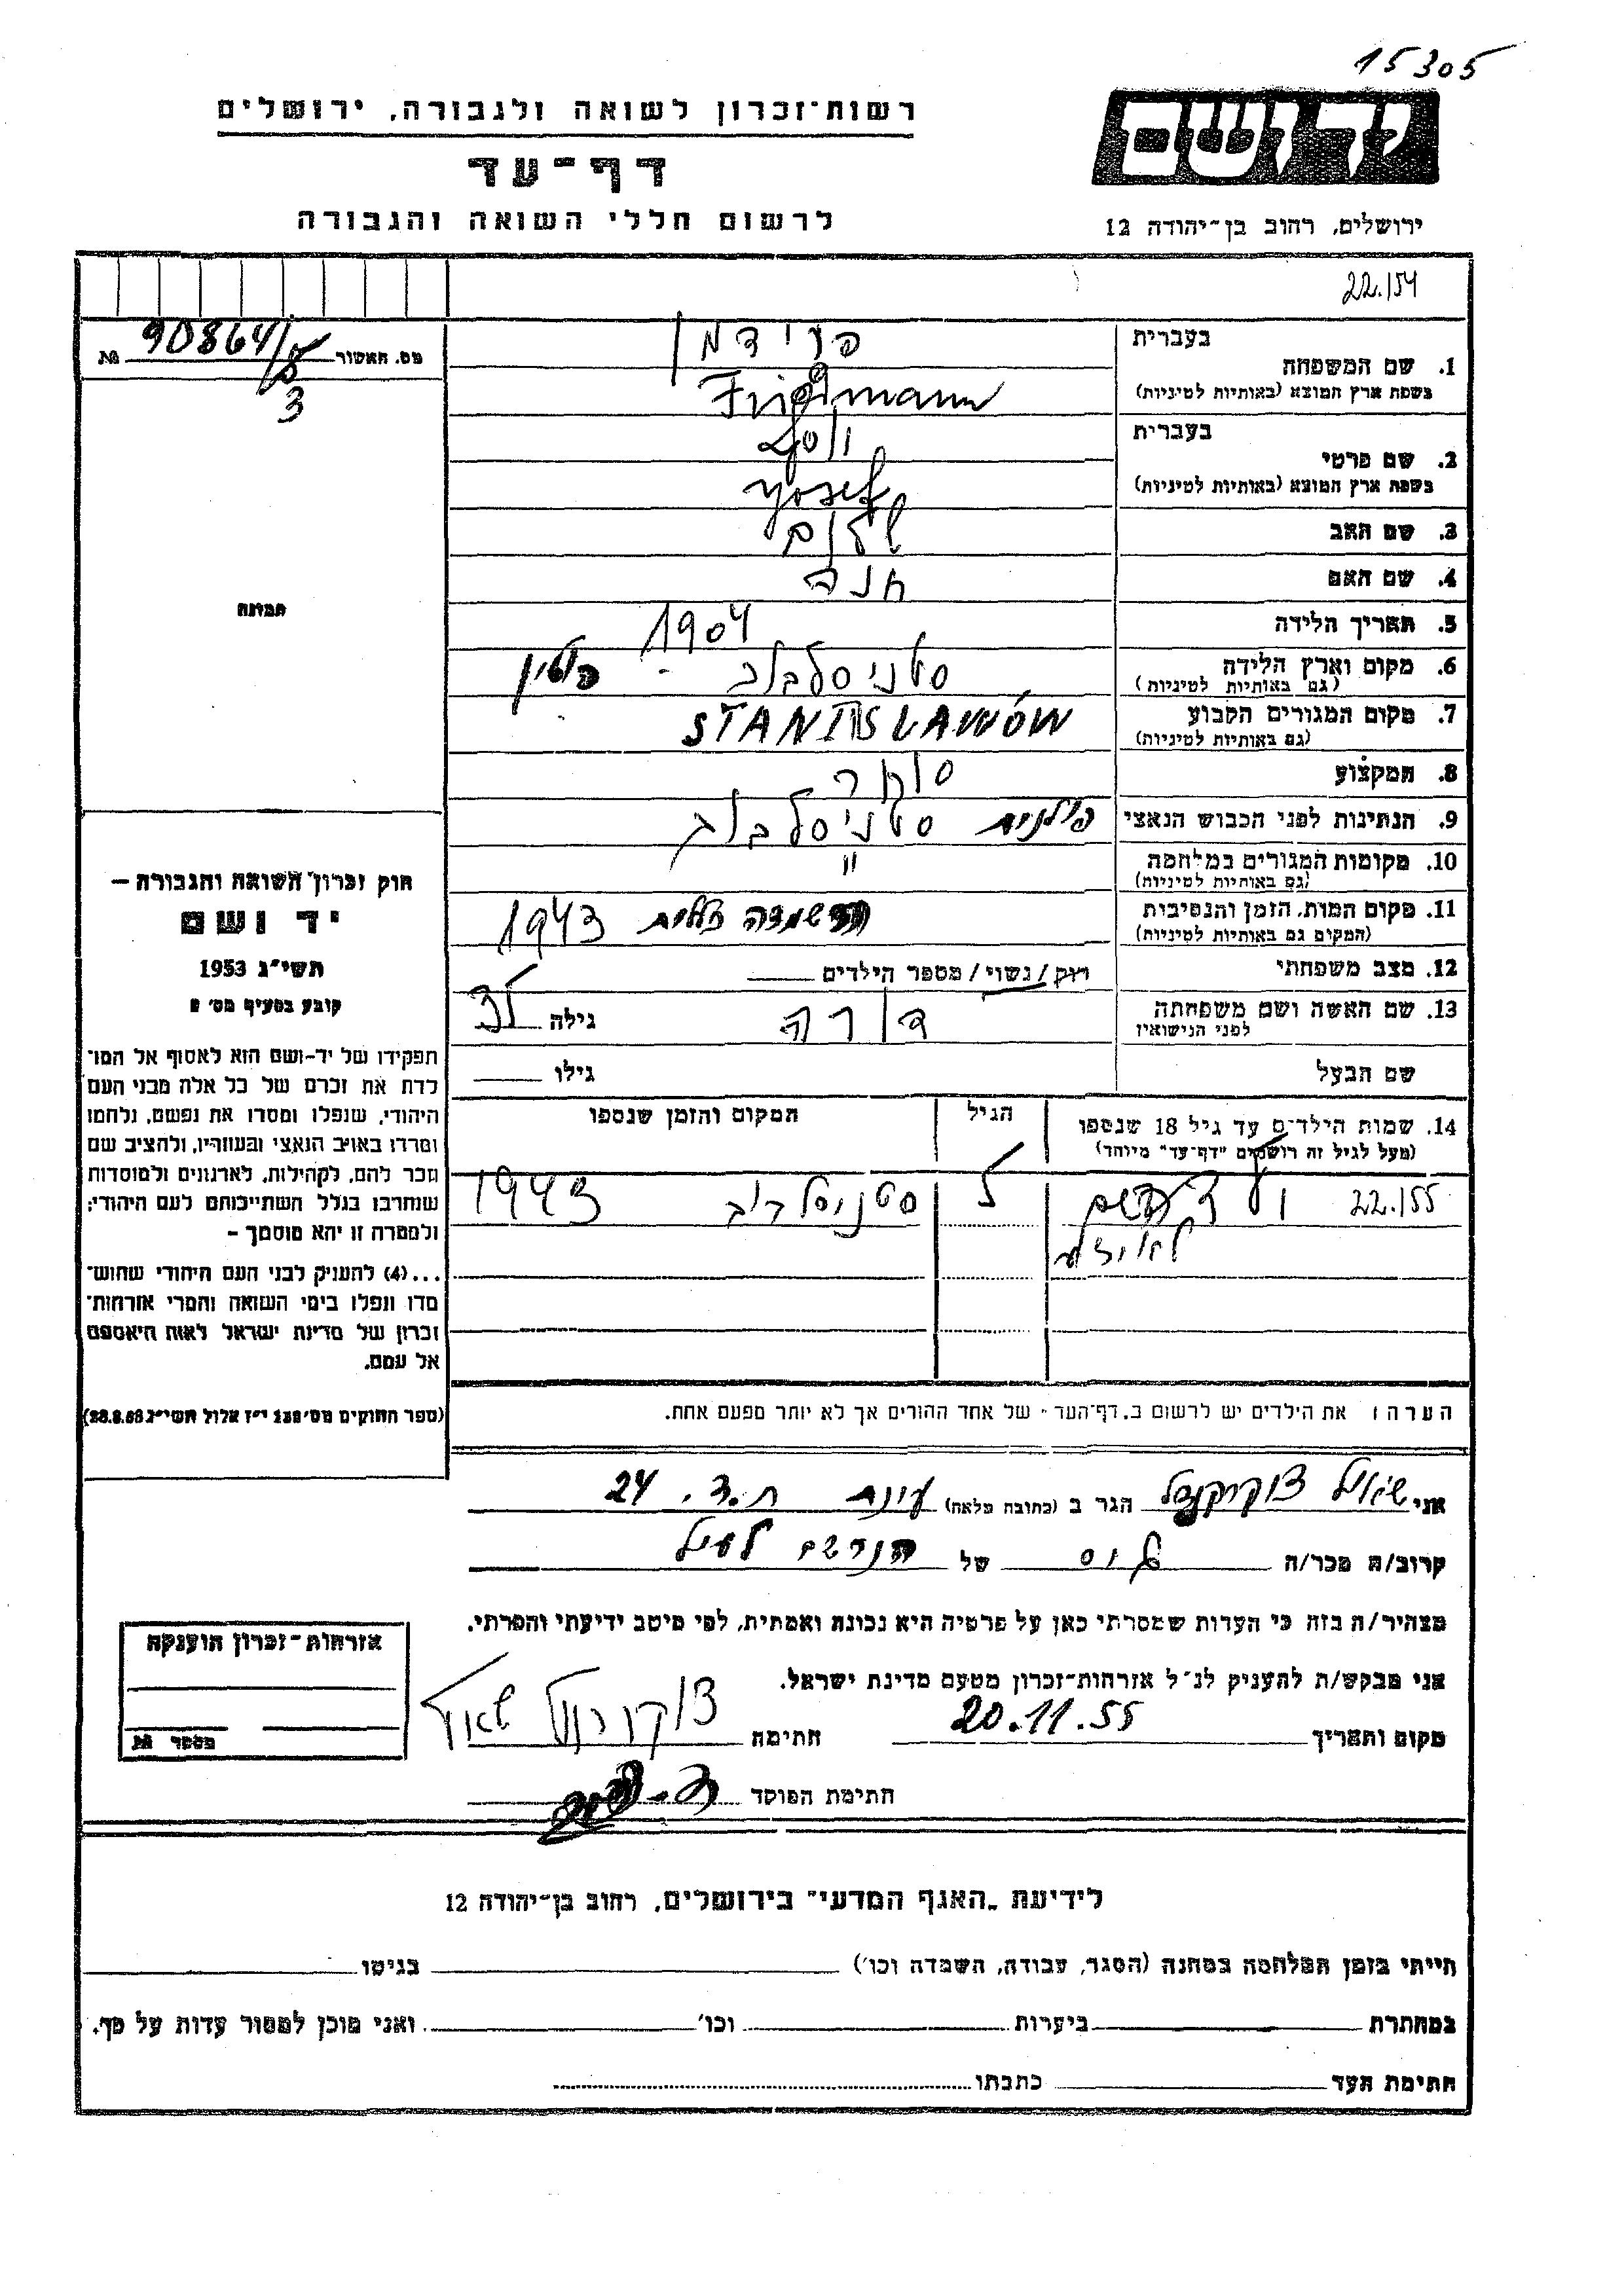 15305
יד ושם
רשות־זכרון לשואה ולגבורה, ירושלים
דף־עד
לרשום חללי השואה והגבורה
ירושלים, רחוב בן־יהודה 12
22.154
מס. האשור № 90864/
3
1. שם המשפחה
בעברית פרידמן
בשפת ארץ המוצא (באותיות לטיניות) Friedmann
2. שם פרטי
בעברית יוסף
בשפת ארץ המוצא (באותיות לטיניות) Yosef
3. שם האב שלום
4. שם האם חנה
5. תאריך הלידה 1904
6. מקום וארץ הלידה סטניסלבוב - פולין
(גם באותיות לטיניות)
7. מקום המגורים הקבוע STANISLAWÓW
(גם באותיות לטיניות)
8. המקצוע סוחר
9. הנתינות לפני הכבוש הנאצי פולנית סטניסלבוב
10. מקומות המגורים במלחמה "
(גם באותיות לטיניות)
11. מקום המות, הזמן והנסיבות 1943
(המקום גם באותיות לטיניות)
12. מצב משפחתי רוק / נשוי / מספר הילדים
13. שם האשה ושם משפחתה דורה גילה
לפני הנישואין
שם הבעל גילו
14. שמות הילדים עד גיל 18 שנספו הגיל המקום והזמן שנספו
(מעל לגיל זה רושמים "דף־עד" מיוחד)
22.155 סטניסלבוב 1943
הערה: את הילדים יש לרשום ב„דף־העד" של אחד ההורים אך לא יותר מפעם אחת.
תמונה
חוק זכרון השואה והגבורה —
יד ושם
תשי"ג 1953
קובע בסעיף מס' 2
תפקידו של יד-ושם הוא לאסוף אל המו־
לדת את זכרם של כל אלה מבני העם
היהודי, שנפלו ומסרו את נפשם, נלחמו
ומרדו באויב הנאצי ובעוזריו, ולהציב שם
וזכר להם, לקהילות, לארגונים ולמוסדות
שנחרבו בגלל השתייכותם לעם היהודי;
ולמטרה זו יהא מוסמך –
...(4) להעניק לבני העם היהודי שהוש־
מדו ונפלו בימי השואה והמרי אזרחות־
זכרון של מדינת ישראל לאות היאספם
אל עמם.
(ספר החוקים מס' 132 י"ז אלול תשי"ג 28.8.53)
אני שאול צוקרקנדל הגר ב (כתובה מלאה) עינת ת.ד. 24
קרוב/ה מכר/ה גיס של הנרשם לעיל
מצהיר/ה בזה כי העדות שמסרתי כאן על פרטיה היא נכונה ואמתית, לפי מיטב ידיעתי והכרתי.
אני מבקש/ת להעניק לנ"ל אזרחות־זכרון מטעם מדינת ישראל.
מקום ותאריך 20.11.55 חתימה צוקרקנדל שאול
חתימת הפוקד
אזרחות־זכרון הוענקה
מספר №
לידיעת „האגף המדעי" בירושלים, רחוב בן־יהודה 12
הייתי בזמן המלחמה במחנה (הסגר, עבודה, השמדה וכו') בגיטו
במחתרת ביערות וכו' ואני מוכן למסור עדות על כך.
חתימת העד כתבתו